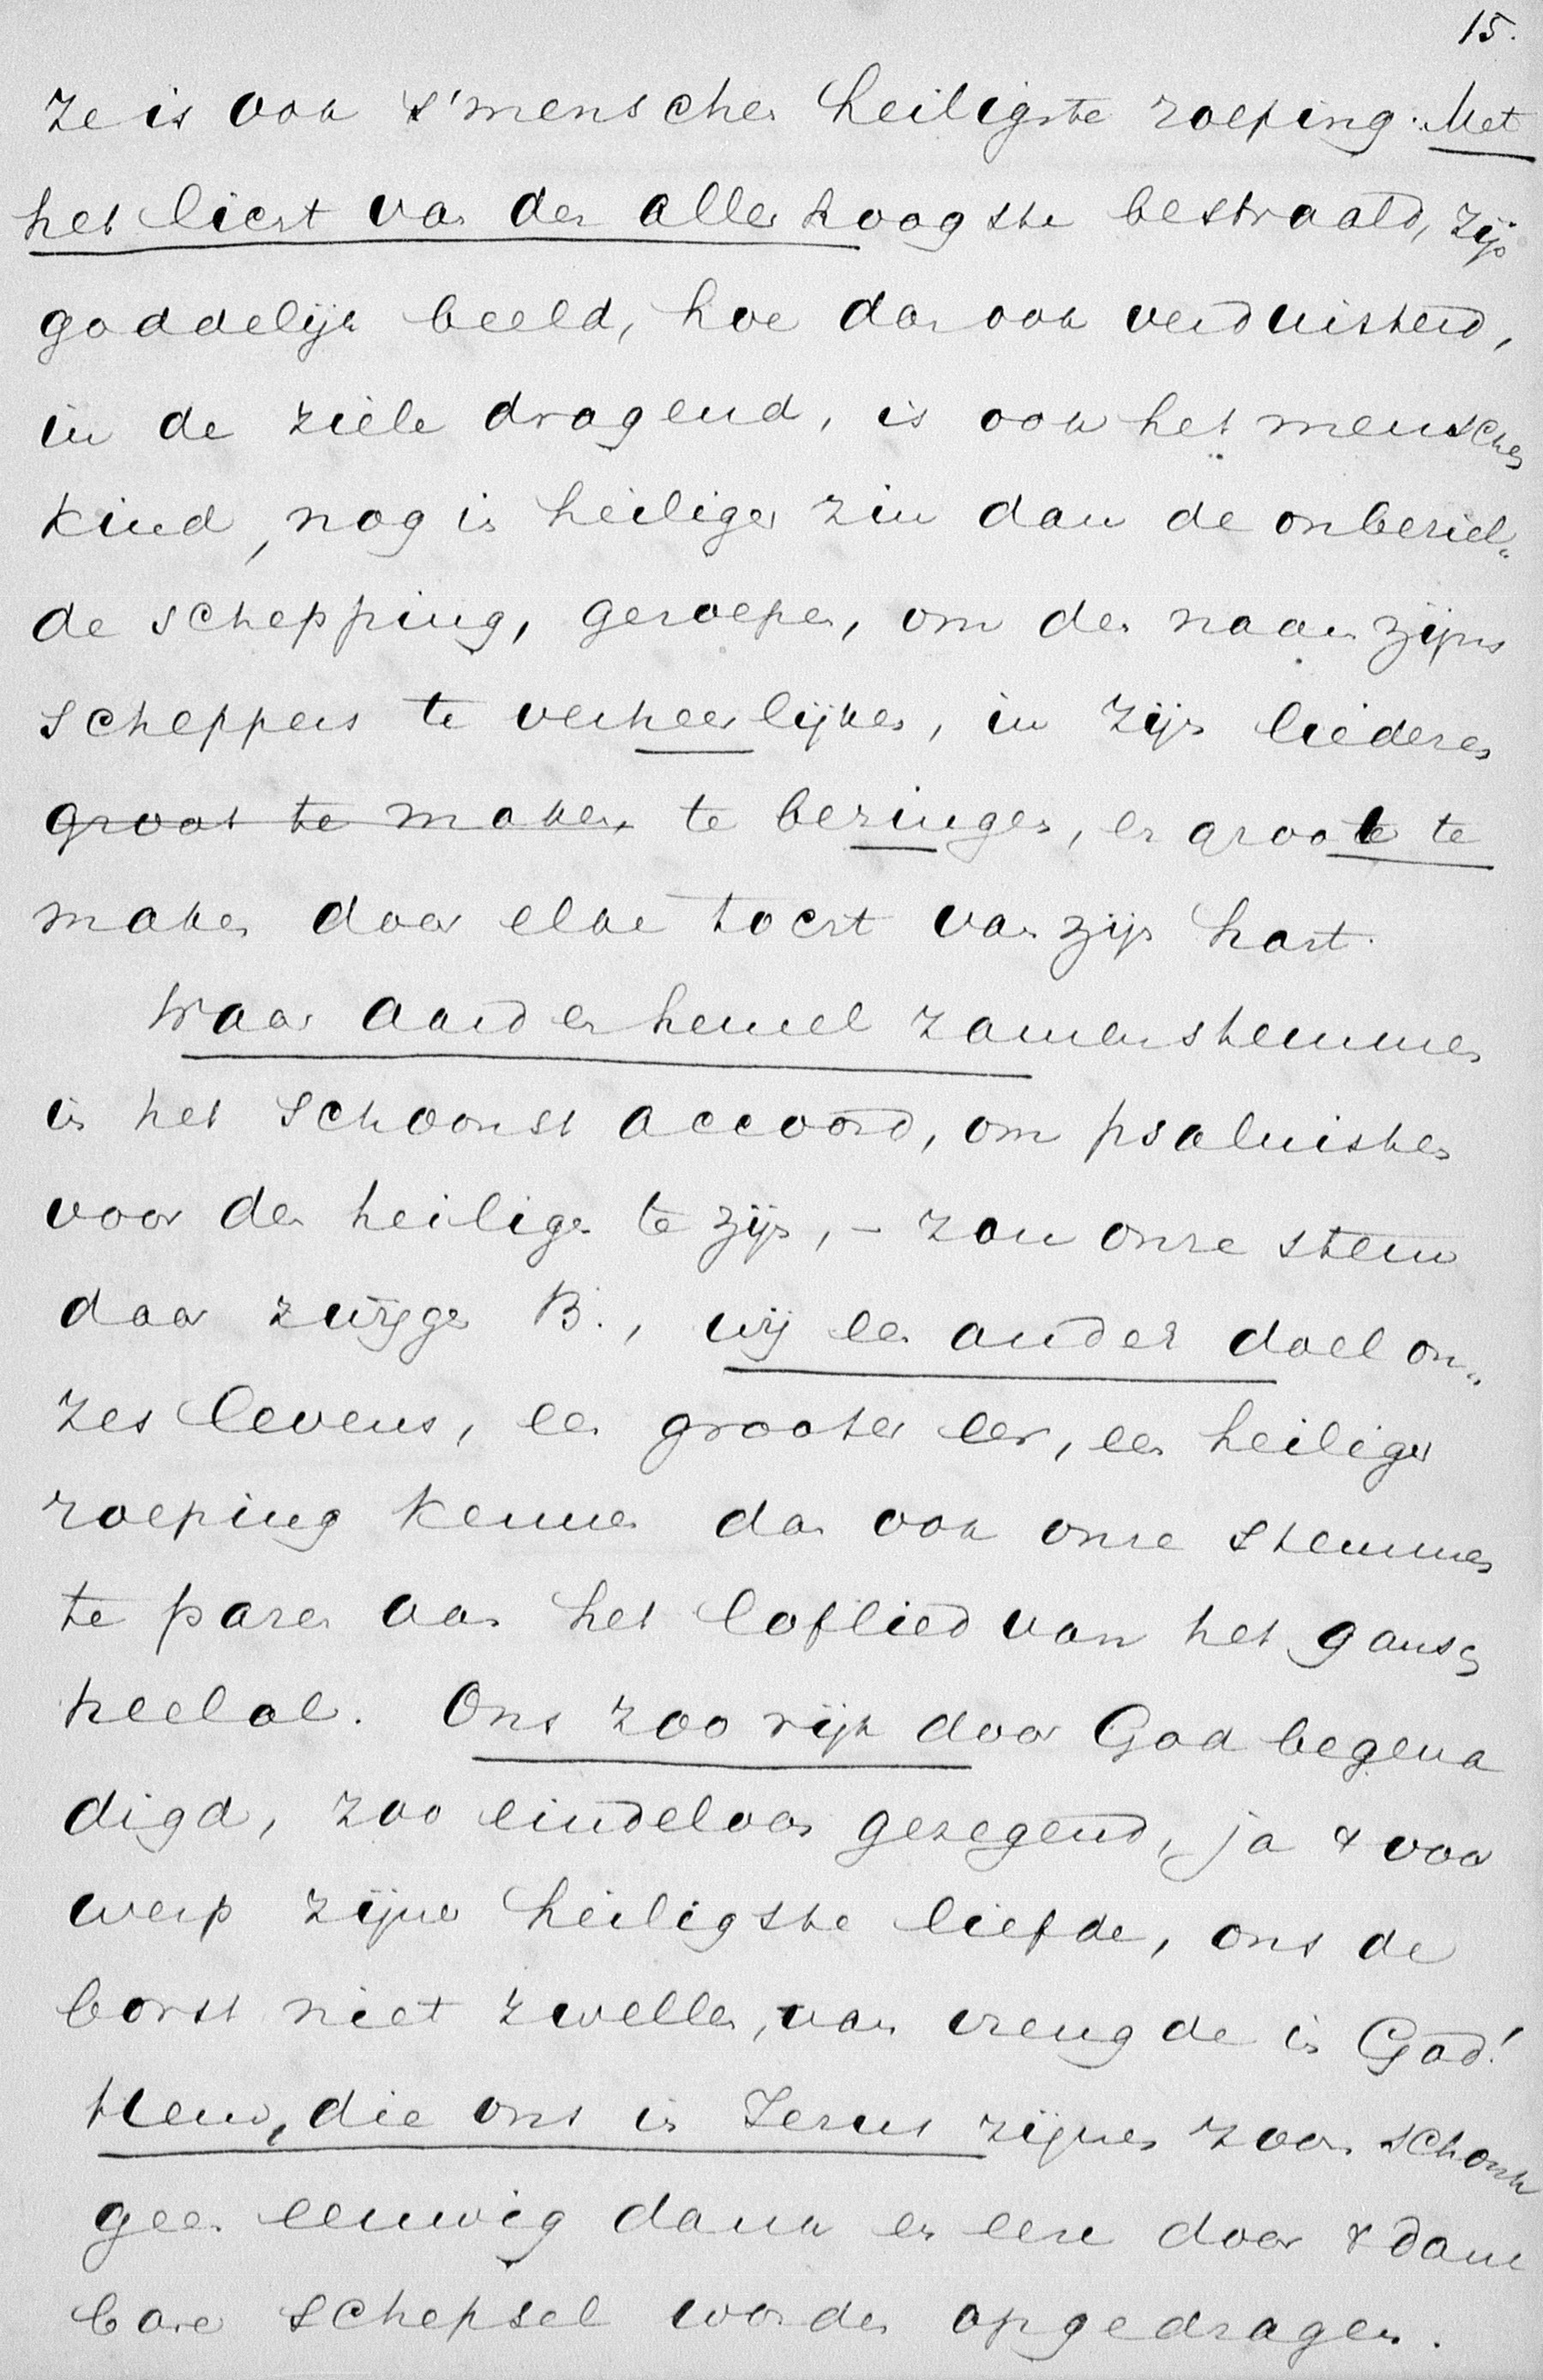 15.
Ze is ook s'menschen heiligste roeping. Met
het licht van den allerhoogste bestraald, zijn
goddelijk beeld, hoe dan ook verduisterd,
in de ziele dragend, is ook het menschen
kind, nog in heiliger zin dan de onbeziel„
de schepping, geroepen, om den naam zijns
scheppers te verheerlijken, in zijn liederen
groot te maken te bezingen, en groot te
maken door elke tocht van zijn hart.
Waar aard en hemel zamenstemmen
in het schoonst accoord, om psalmisten
voor den heiligen te zijn, – zou onze stem
daar zwijgen B., wij een ander doel on„
zes levens, een grooter eer, een heiliger
roeping kennen dan ook onze stemmen
te paren aan het loflied van het gansch
heelal. Ons zoo rijk door God begena
digd, zoo eindeloos gezegend, ja & voor
werp zijner heiligste liefde, ons de
borst niet zwellen, van vreugde in God!
Hem, die ons in Jezus zijnen zoon schonk
geen eeuwig dank en eere door & dank
bare schepsel worden opgedragen.